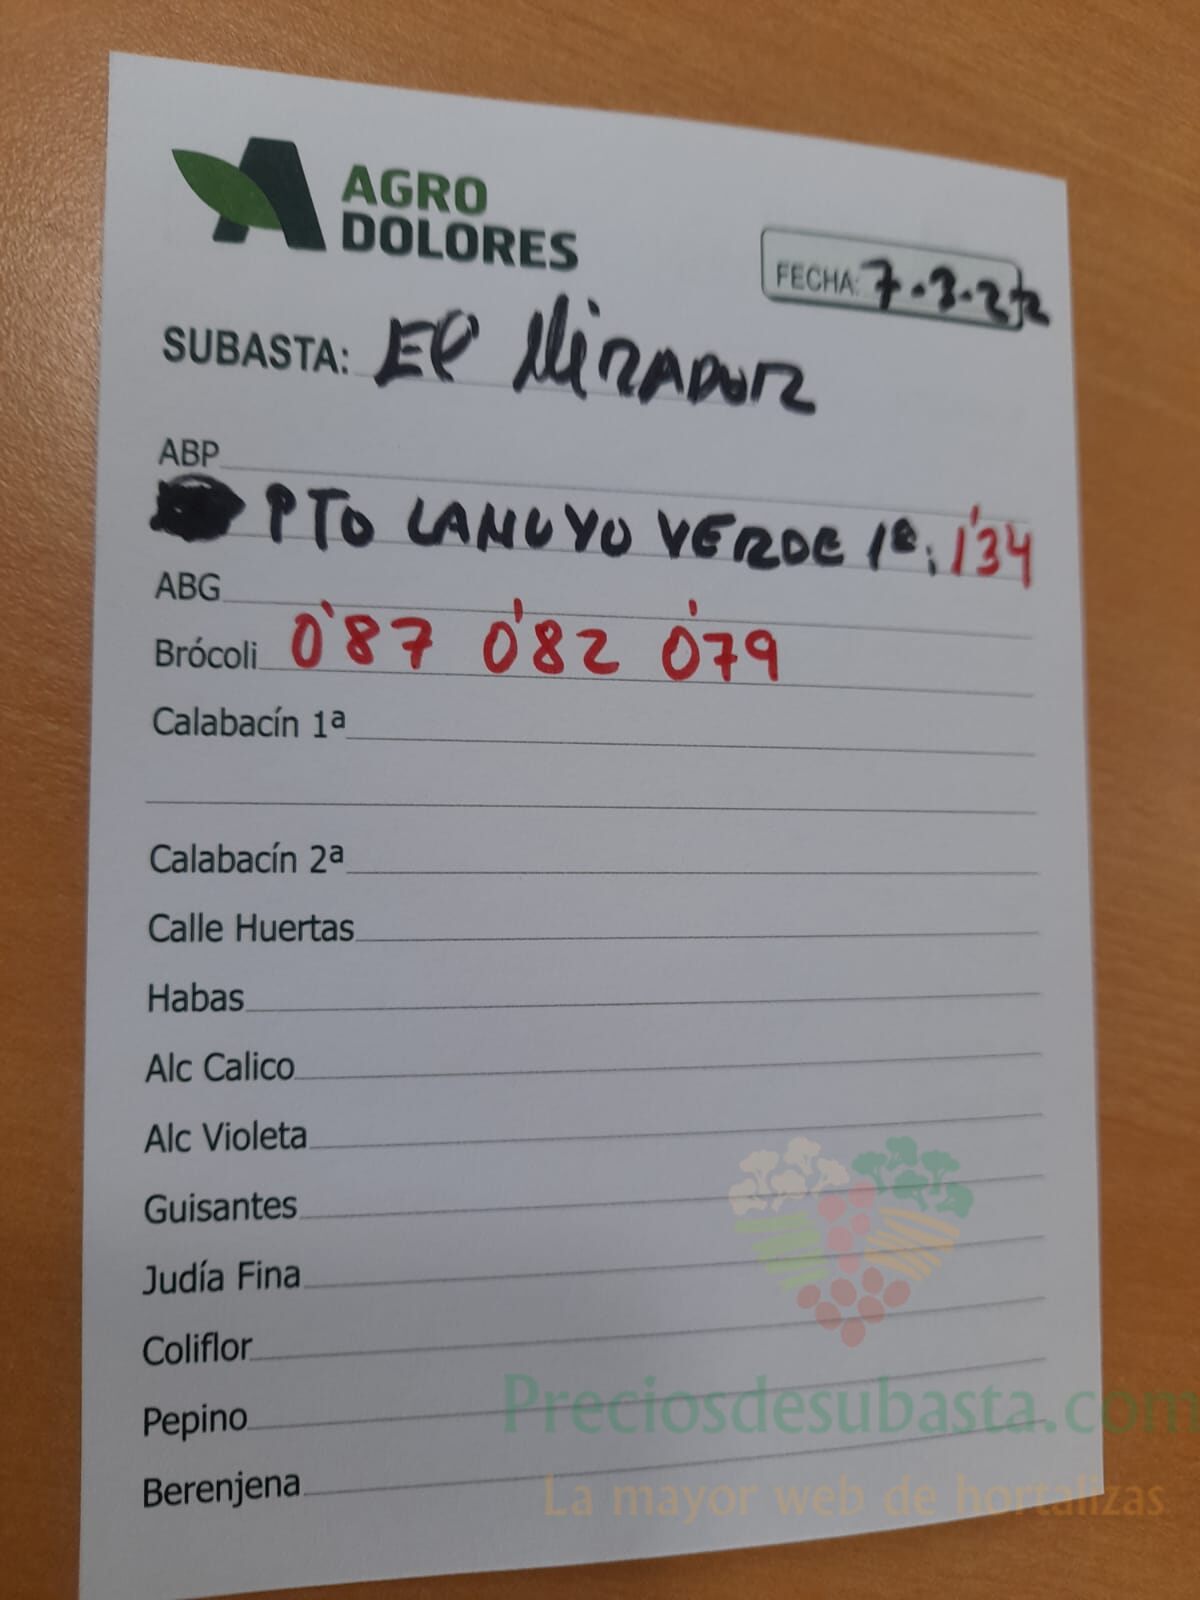 AGRO
DOLORES
FECHA: 7-3-22
SUBASTA: El Mirador
ABP
PTO LAMUYO VERDE 1ª: 1'34
ABG
Brócoli 0'87 0'82 0'79
Calabacín 1ª
Calabacín 2ª
Calle Huertas
Habas
Alc Calico
Alc Violeta
Guisantes
Judía Fina
Coliflor
Pepino
Berenjena
Preciosdesubasta.com
La mayor web de hortalizas